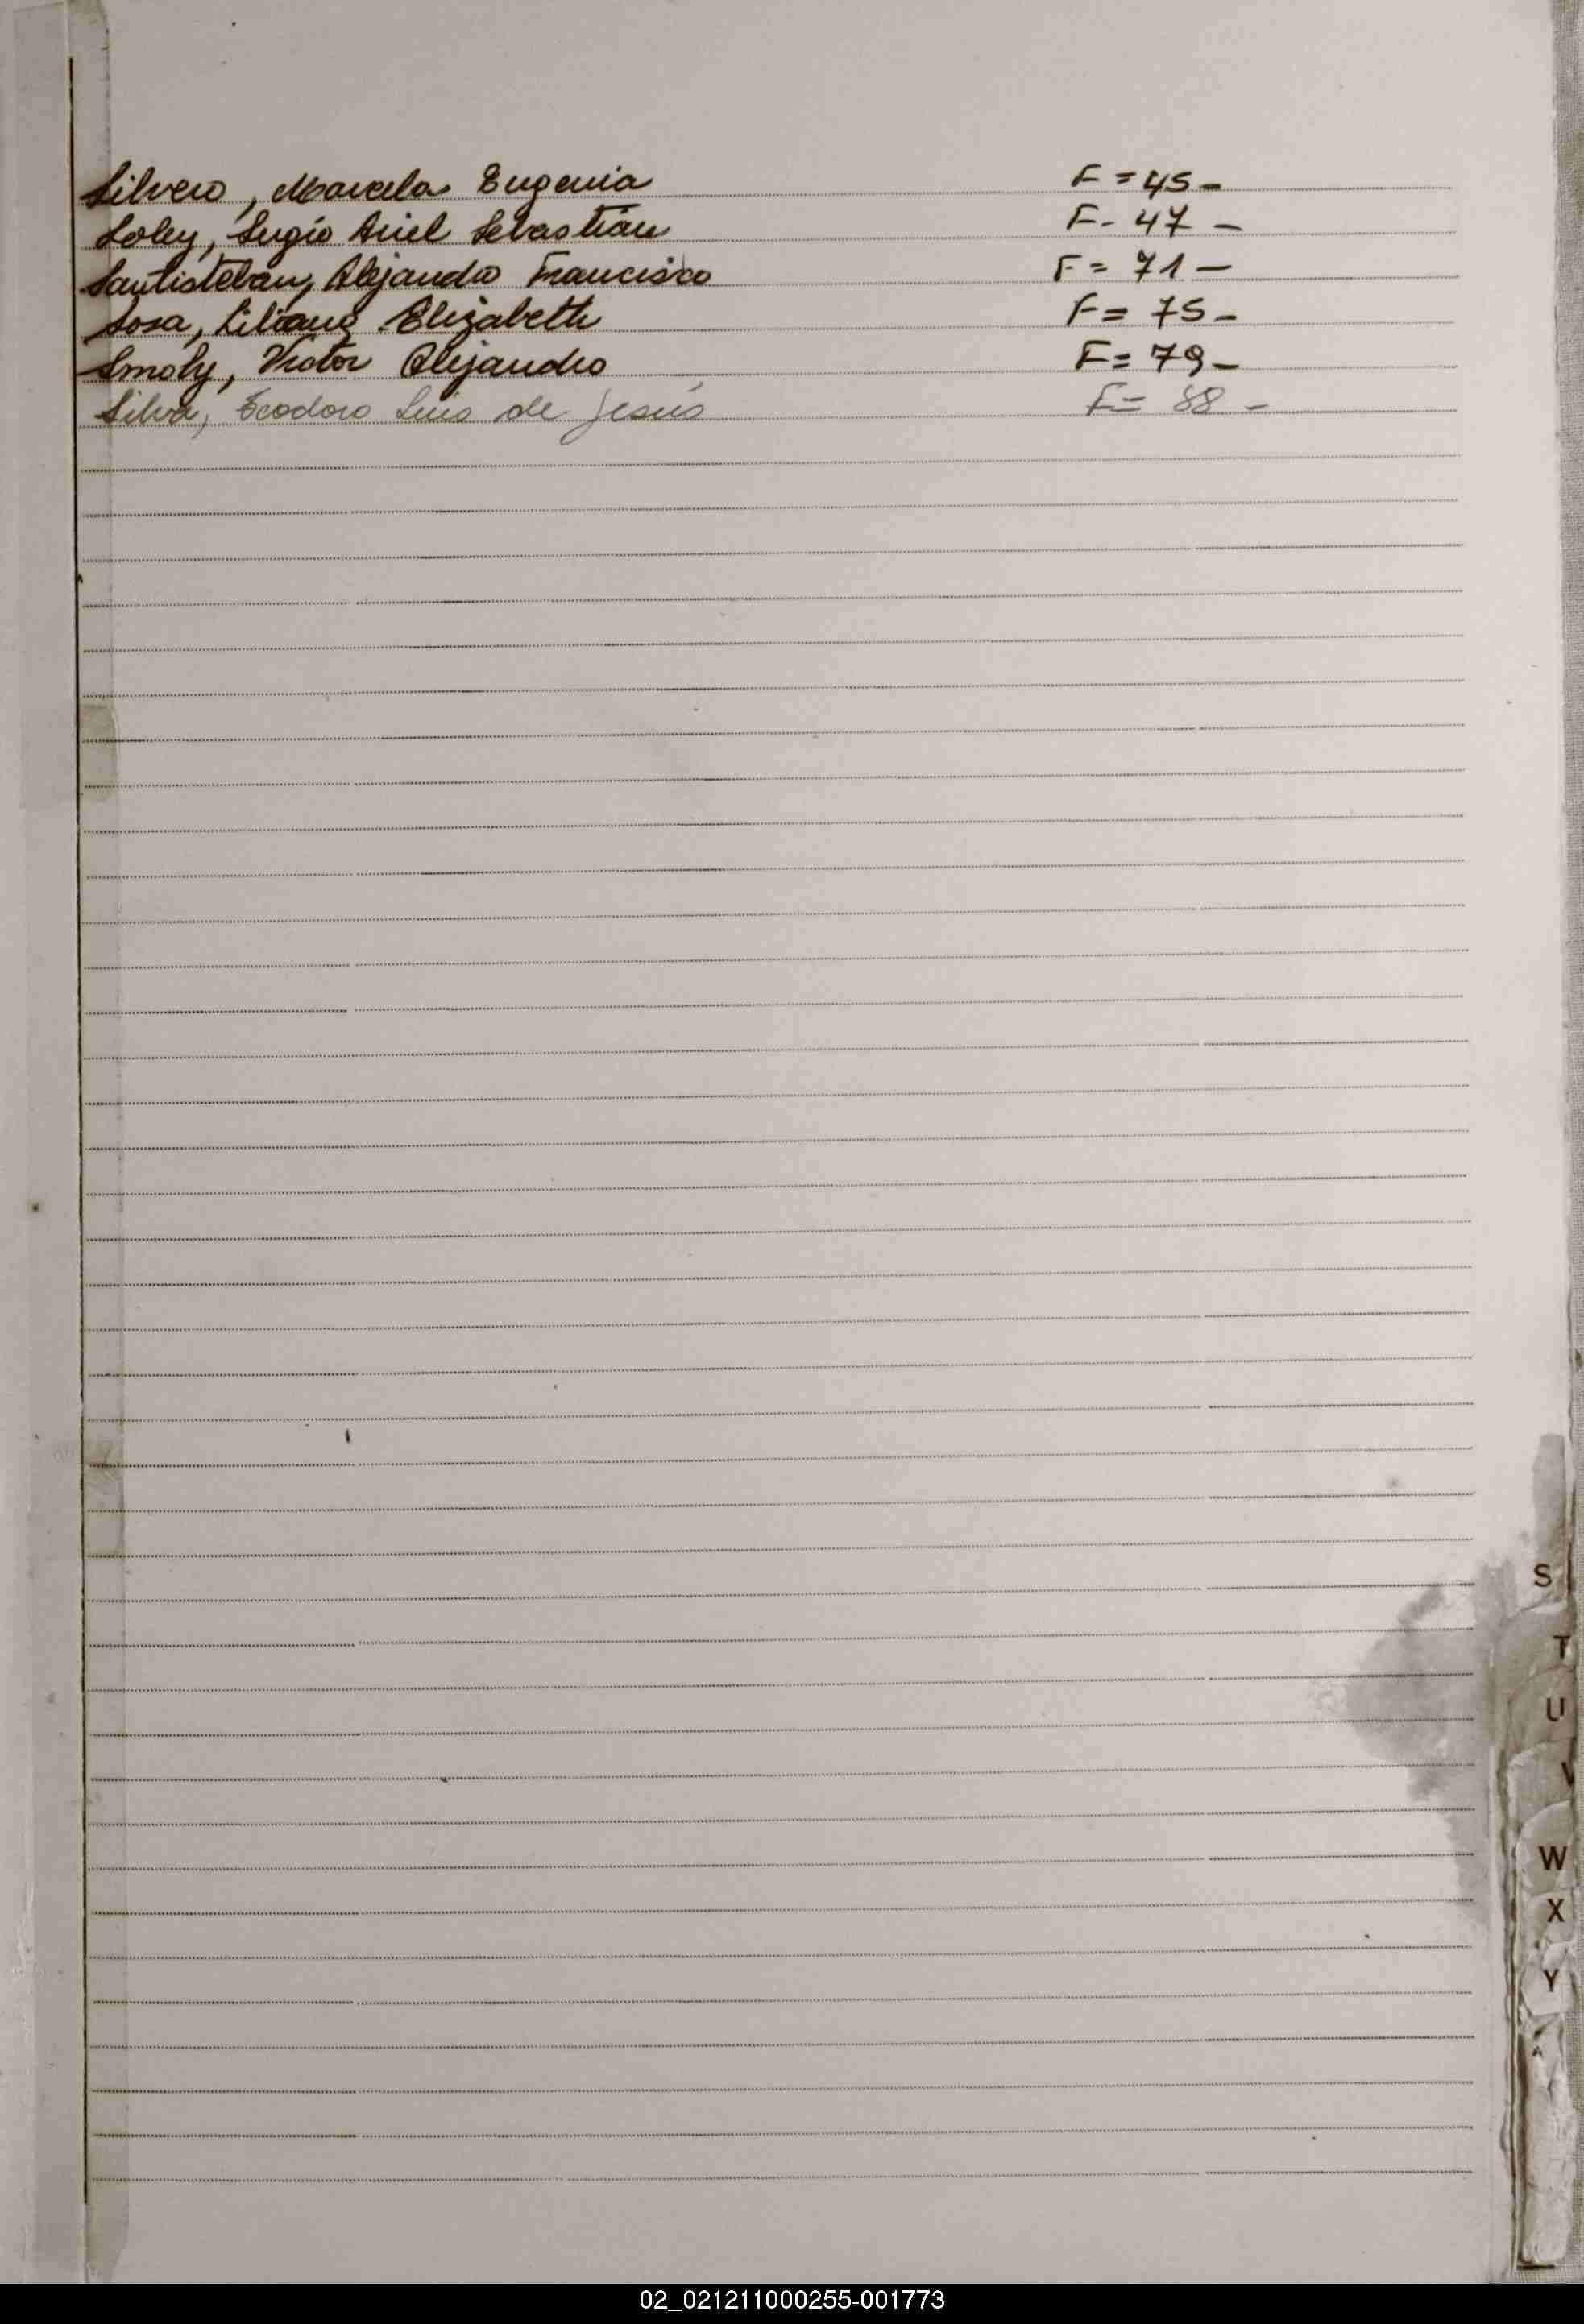 Silvero, Marcela Eugenia F = 45 -
Soley, Sergio Ariel Sebastián F - 47 -
Santisteban, Alejandro Francisco F = 71 -
Sosa, Liliana Elizabeth F = 75 -
Smoly, Victor Alejandro F = 79 -
Silva, Teodoro Luis de Jesús F = 88 -
S
T
U
V
W
X
Y
02_021211000255-001773